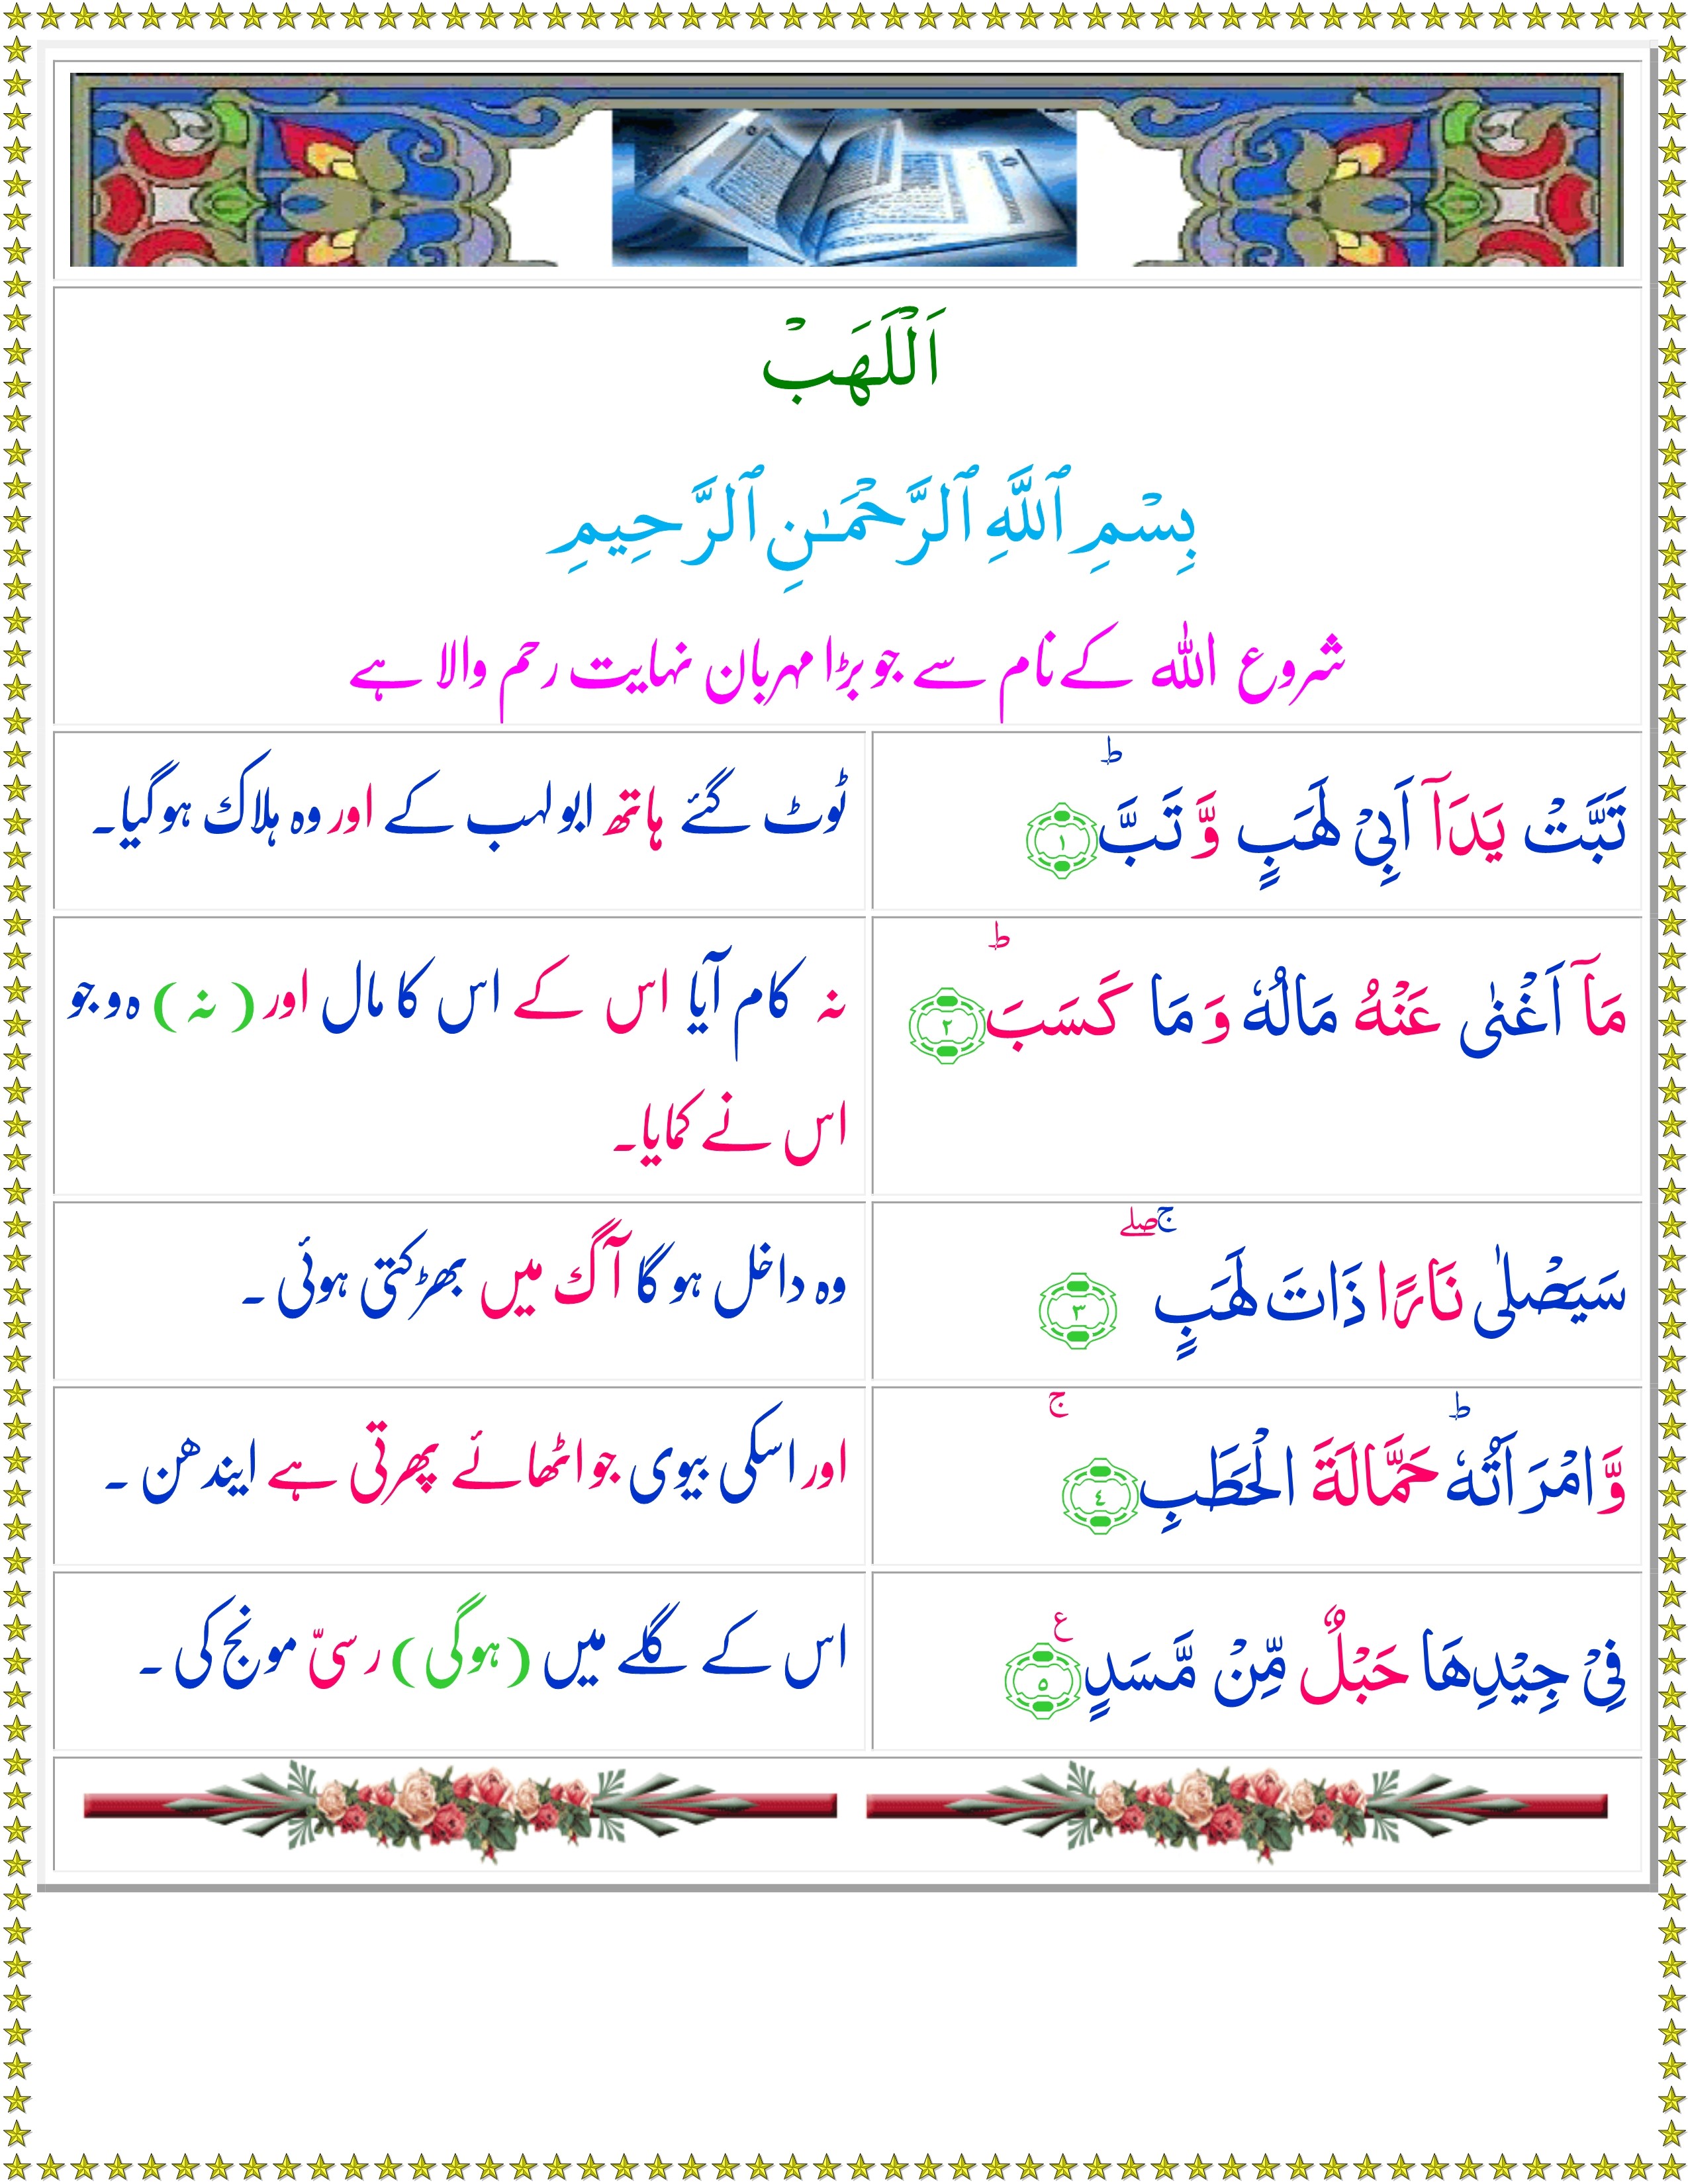 اَلْلَهَبْ
بِسْمِ ٱللَّهِ ٱلرَّحْمَـٰنِ ٱلرَّحِيمِ
شروع اللہ کے نام سے جو بڑا مہربان نہایت رحم والا ہے
تَبَّتْ يَدَآ اَبِىْ لَهَبٍ وَّ تَبَّ ؕ‏ ﴿۱﴾
ٹوٹ گئے ہاتھ ابولہب کے اور وہ ہلاک ہوگیا۔
مَاۤ اَغْنٰى عَنْهُ مَالُهٗ وَ مَا كَسَبَؕ‏ ﴿۲﴾
نہ کام آیا اس کے اس کا مال اور (نہ) ہو جو
اس نے کمایا۔
سَيَصْلٰى نَارًا ذَاتَ لَهَبٍ ۚۖ‏ ﴿۳﴾
وہ داخل ہو گا آگ میں بھڑکتی ہوئی ۔
وَّ امْرَاَتُهٗ ؕ حَمَّالَةَ الْحَطَبِ‌ۚ‏ ﴿٤﴾
اور اسکی بیوی جو اٹھائے پھرتی ہے ایندھن ۔
فِىْ جِيْدِهَا حَبْلٌ مِّنْ مَّسَدٍ ع ﴿٥﴾
اس کے گلے میں (ہوگی) رسیّ مونج کی ۔